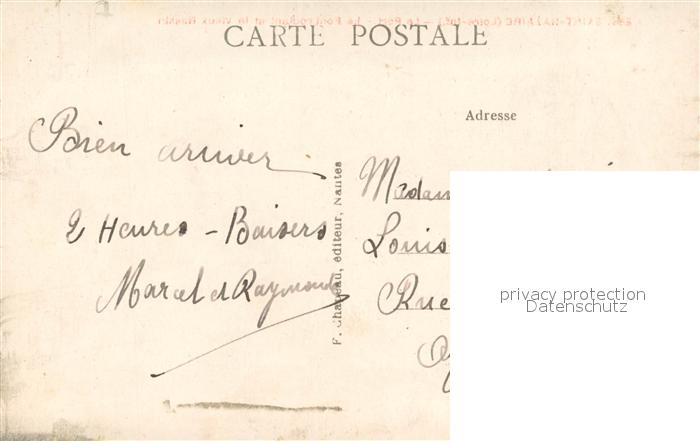 CARTE POSTALE
Adresse
Bien arriver
2 Heures - Baisers
Marcel et Raymonde
F. Chapeau, éditeur, Nantes
Madam
Louis
Rue
privacy protection
Datenschutz